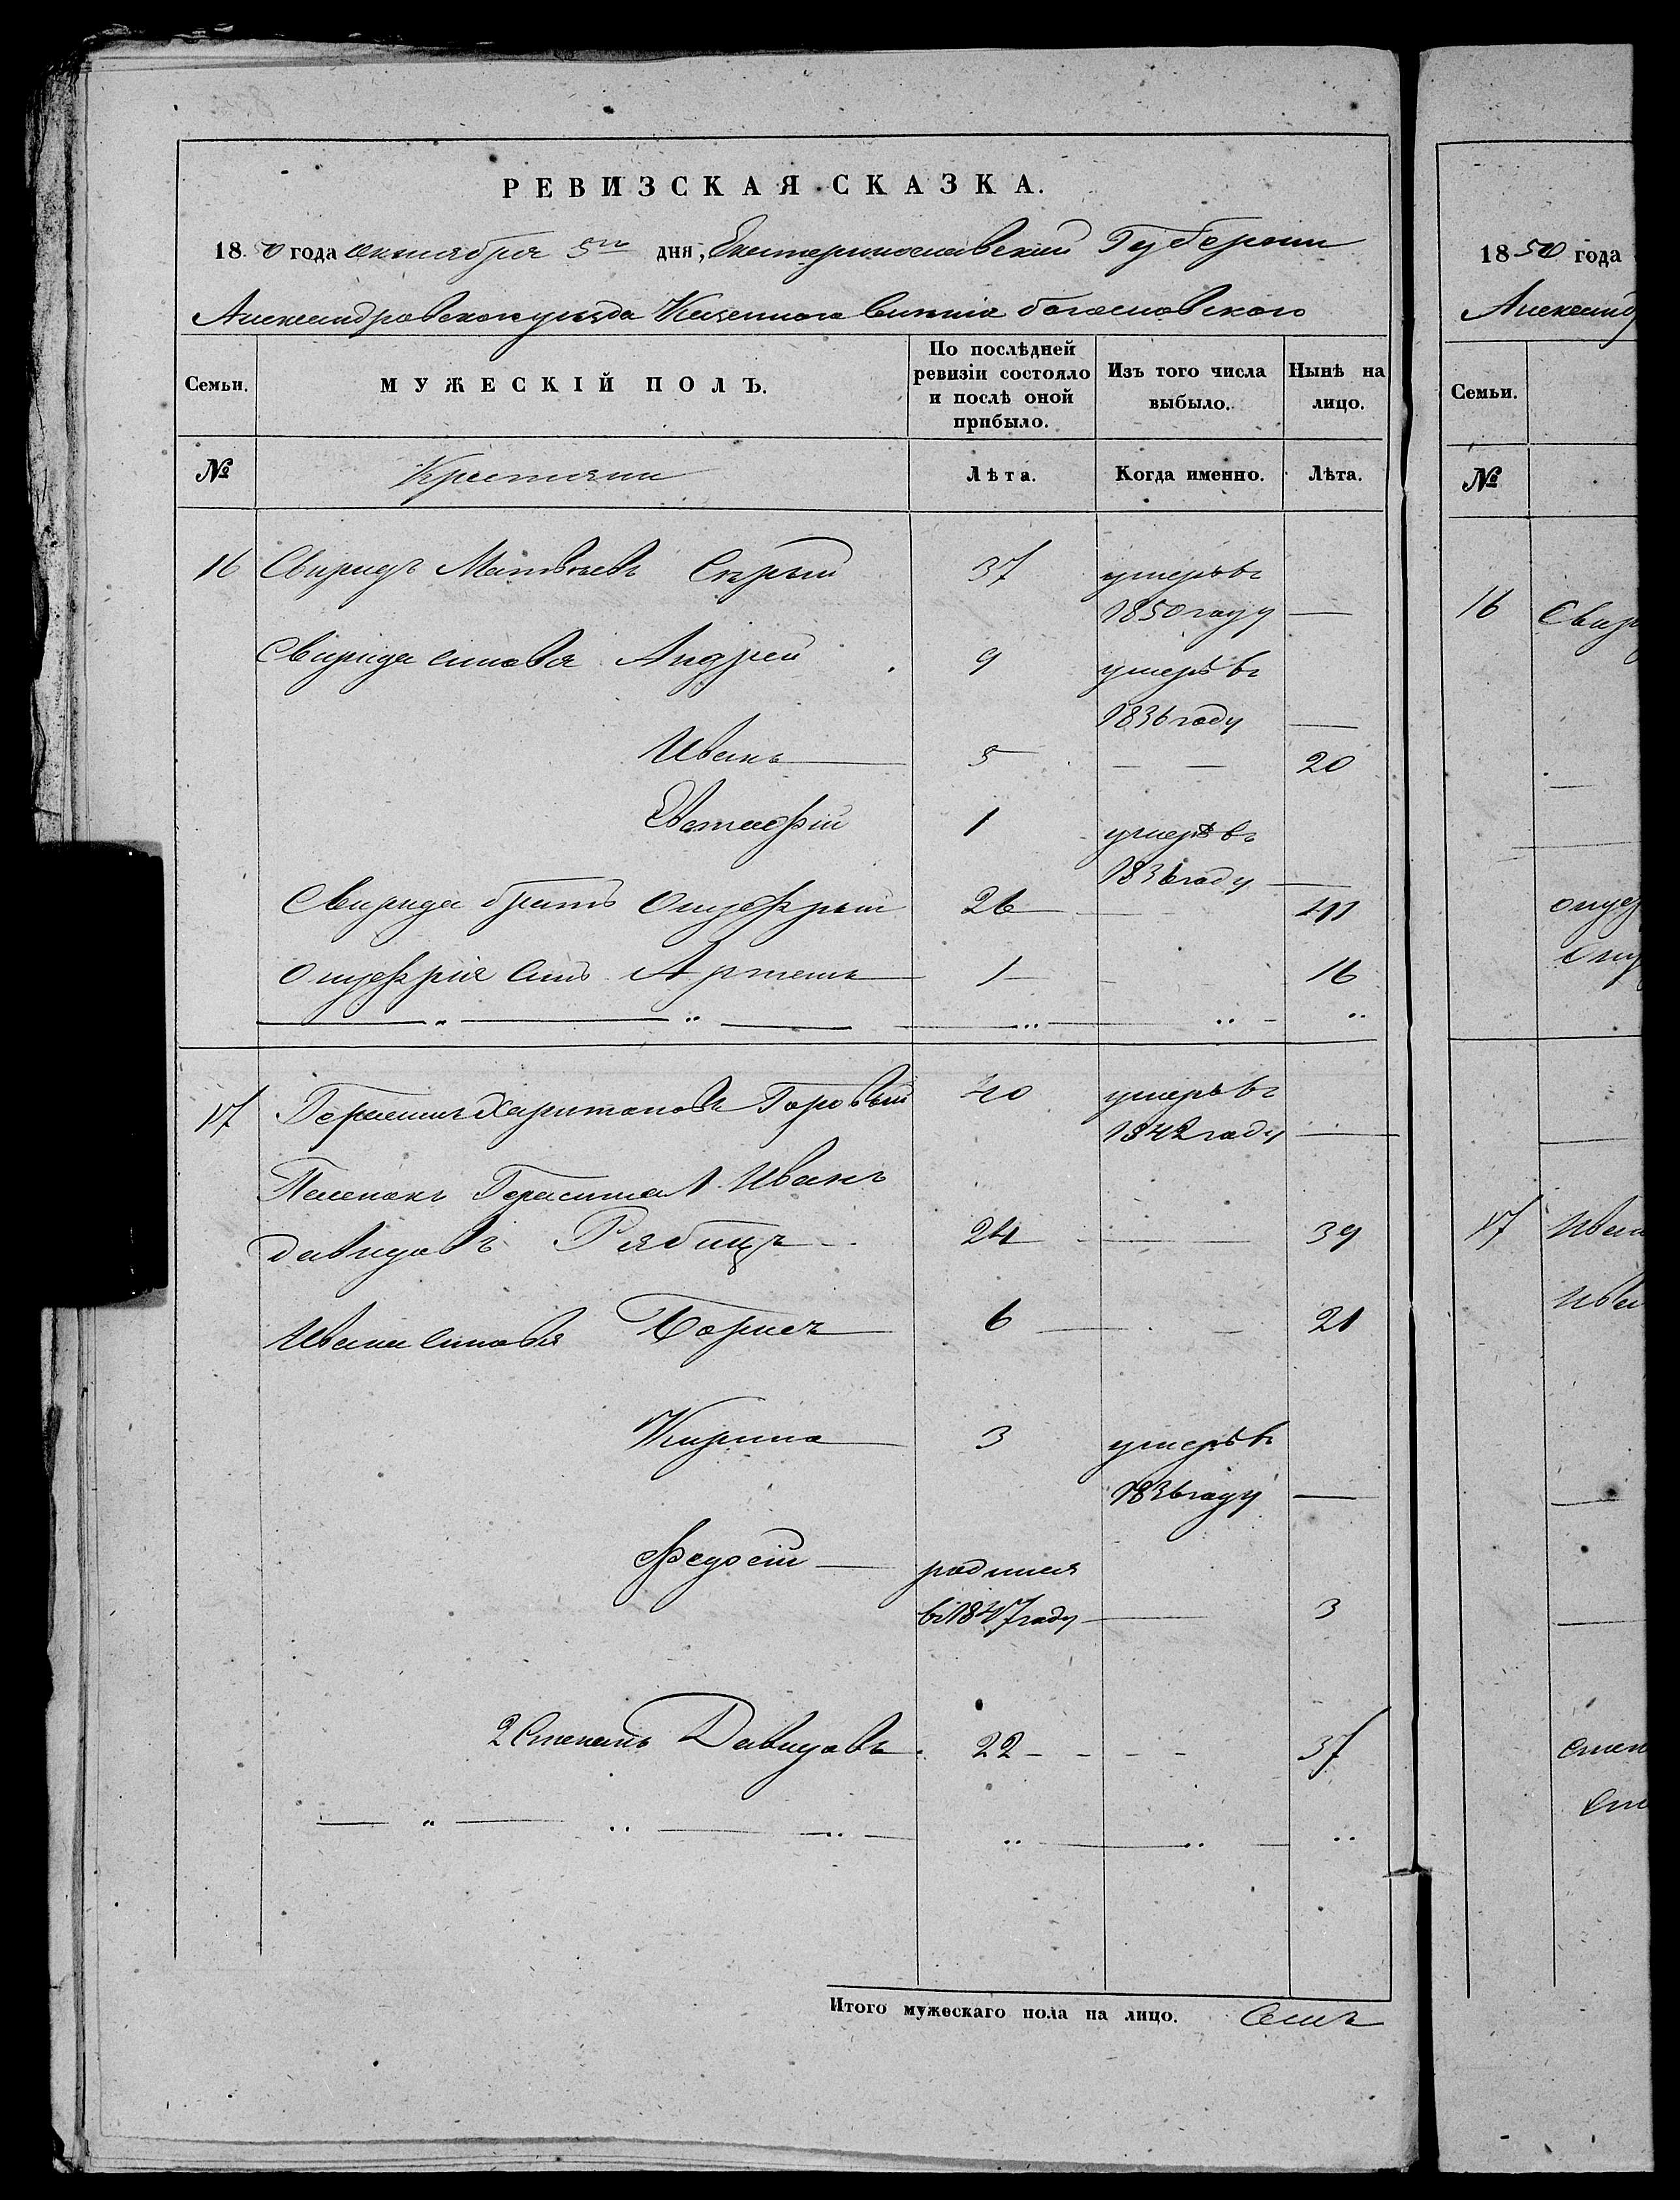 РЕВИЗСКАЯ СКАЗКА.
18 0 года октября 5го дня, Екатеринославской Губернии
Александровского уезда Казенного Богословского
Семьи. МУЖЕСКІЙ ПОЛЪ. По послѣдней ревизіи состояло и послѣ оной прибыло. Изъ того числа выбыло. Нынѣ на лицо.
№ Крестяни Лѣта. Когда именно. Лѣта.
16 Свиридъ Матвѣевъ Сѣрый 37 умеръ въ
1850 году —
Свирида синовя Андрей 9 умеръ въ
1836 году —
Иванъ 5 — — 20
Евстафій 1 умеръ въ
1836 году —
Свирида братъ Онуфрый 26 — 41
Онуфрія синъ Артемъ 1 - 16
17 Герасимъ Харитоновъ Горовый 40 умеръ въ
1842 году —
Герасима 1 Иванъ
Давидовъ 24 — 39
Ивана синовя Борисъ 6 — 21
Кирило 3 умеръ въ
1836 году —
Федосій — родился
въ 1847 году — 3
2 Степанъ Давидовъ 22 - - - - 37
Итого мужескаго пола на лицо. Семъ
1850 года
Александ
Семьи.
№
16 Свир
онуф
Ону
17 Иван
Ива
степ
Сте